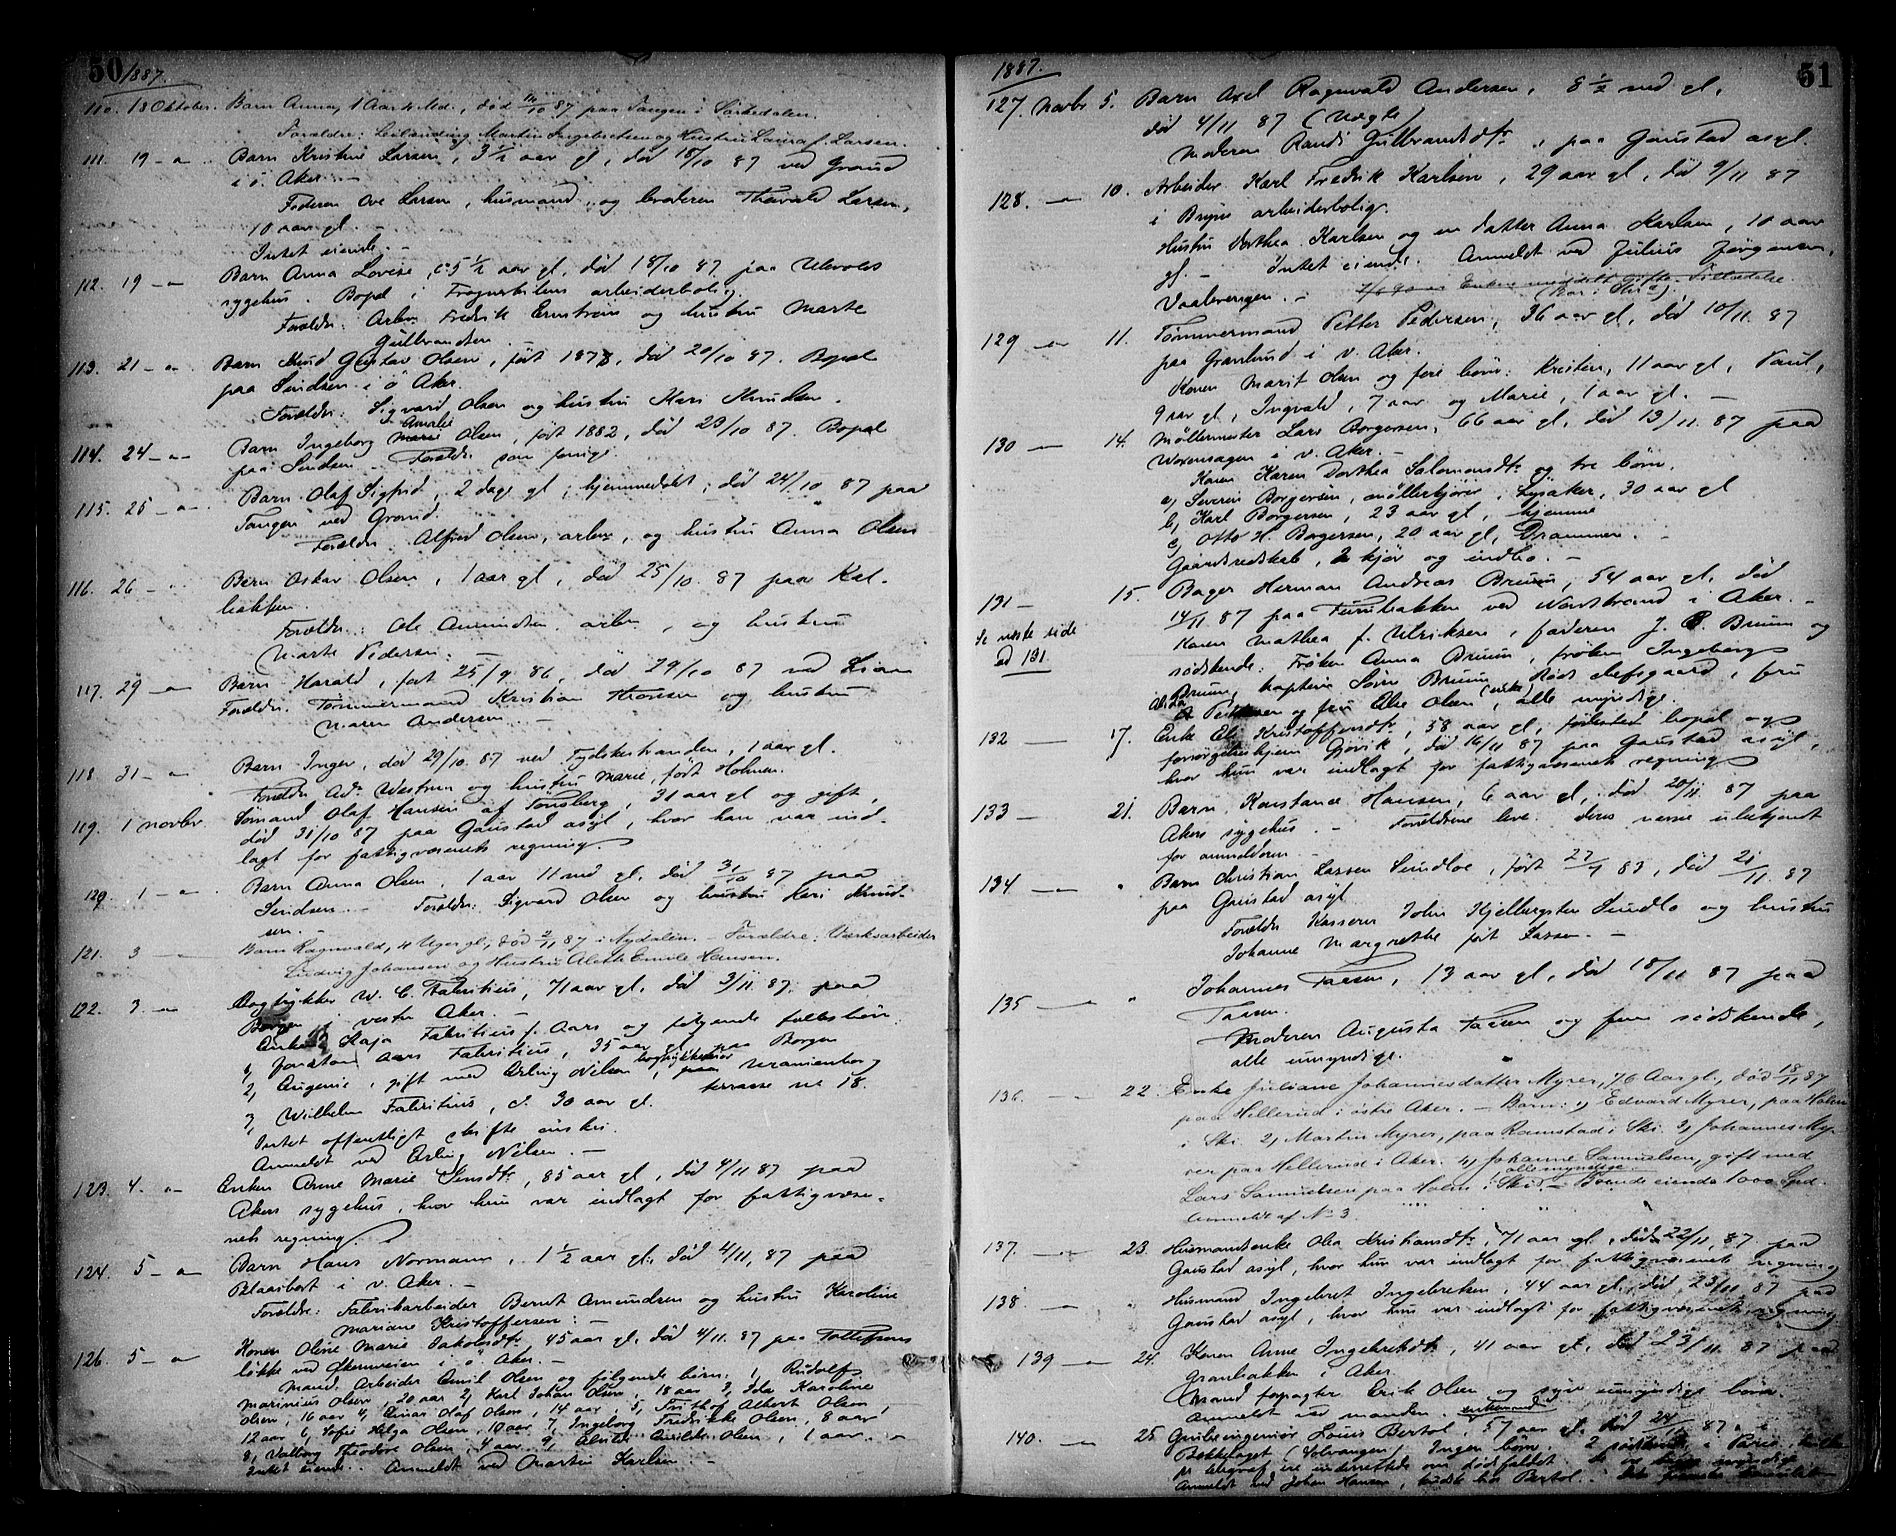 50
1887.
110. 18 Oktober. Barn Anna, 1 Aar 4 Md., død /10 87 paa Tangen i Sørkedalen.
Forældre: Leilænding Martin Ingebretsen og Hustru Laura f. Larsen.
111. 19 - Barn Kristine Larsen, 3 1/2 aar gl, død 18/10 87 ved Grorud
i ø. Aker. -
Faderen Ove Larsen, husmand, og broderen Thorvald Larsen,
10 aar gl. -
Intet eiende. -
112. 19 - Barn Anna Lovise, 5 1/2 aar gl, død 18/10 87 paa Ullevolds
sygehus. Bopæl i Frognerkilens arbeiderbolig.
Forældre: Arbr. Fredrik Ernstrøm og hustru Marte
Gulbrandsen. -
113. 21 - Barn Knud Gustav Olsen, født 1878, død 20/10 87. Bopæl
paa Sinsen i ø Aker.
Forældre: Sigvard Olsen og hustru Kari Knudsen.
Amalie
114. 24 - Barn Ingeborg Marie Olsen, født 1882, død 23/10 87. Bopæl
paa Sinsen. Forældre som forrige.
115. 25 - Barn Olaf Sigfrid, 2 dage gl, hjemmedøbt, død 24/10 87 paa
Tangen ved Grorud.
Forældre Alfred Olsen, arbr, og hustru Anna Olsen
116. 26 - Barn Oskar Olsen, 1 aar gl, død 25/10 87 paa Kal-
bakken.
Forældre: Ole Amundsen, arbr., og hustru
Marte Pedersen. -
117. 29 - Barn Harald, født 25/9 86, død 29/10 87 ved Lian
Forældre. Tømmermand Kristian Thoresen og hustru
Maren Andersen. -
118. 31 - Barn Inger, død 29/10 87 ved Fydskestranden, 1 aar gl.
Forældre Ad. Westrum og hustru Marie, født Holmen.
119. 1 novbr. Sømand Olaf Hansen af Tønsberg, 31 aar gl og gift,
død 31/10 87 paa Gaustad asyl, hvor han var ind-
lagt for fattigvæsenets regning.
120. 1 - Barn Anna Olsen, 1 aar 11 md gl, død 31/10 87 paa
Sinsen. - Forældre: Sigvard Olsen og hustru Kari Knud-
sen. -
121. 3 - Barn Ragnvald, 4 Uger gl., død 2/11 87 i Nydalen. - Forældre: Værksarbeider
Ludvig Johansen og Hustru Aleth Emile Hansen.
122. 3 - Bogtrykker W. C. Fabritius, 71 aar gl, død 3/11 87. paa
Borgen i vestre Aker. -
Enke Kaja Fabritius f. Aars og følgende fællesbørn:
1, Jonathan Aars Fabritius, 35 aar gl paa Borgen
2, Augenie, gift med bogtrykkeeier Erling Nilsen, paa Uranienborg
terrasse no 18.
3, Wilhelm Fabritius, c. 30 aar gl.
Intet offentligt skifte ønskes.
Anmeldt ved Erling Nilsen. -
123. 4. - Enken Anne Marie Jensdtr, 85 aar gl, død 4/11 87 paa
Akers sygehus, hvor hun var indlagt for fattigvæse-
nets regning.
124. 5 - Barn Hans Normann, 1 1/2 aar gl, død 4/11, 87 paa
Blaasbort i v. Aker. -
Forældre: Fabrikarbeider Bernt Amundsen og hustru Karoline
Mariane Kristoffersen: -
126. 5 - Konen Oline Marie Jakobsdtr. 45 aar gl. død 4/11. 87 paa Tollefsens
løkke ved Økernveien i ø. Aker. -
Mand: Arbeider Emil Olsen og følgende børn: 1, Rudolf
Marinius Olsen, 20 aar 2, Karl Johan Olsen, 18 aar 3, Ida Karoline
Olsen, 16 aar 4, Einar Olaf Olsen, 14 aar, 5, Frithof Albert Olsen,
12 aar 6, Sofie Helga Olsen, 10 aar 7, Ingeborg Fredrikke Olsen, 8 aar
8, Valborg Theodore Olsen, 4 aar 9, Olsen, 1 aar. -
Intet eiende. Anmeldt ved Martin Karlsen. -
51
1887.
127. Novbr 5. Barn Axel Ragnvald Andersen, 8 1/2 md gl,
død 4/11 87 (Uægte)
Moderen Randi Gulbrandsdtr., paa Gaustad asyl.
128. - 10. Arbeider Karl Fredrik Karlsen, 29 aar gl, død 9/11 87
i Bryns arbeiderbolig.
Hustru Dorthea Karlsen og en datter Anna Karlsen, 10 aar
gl. - Intet eiende. Anmeldt ved Julius Jørgensen,
Vaalerengen. - 7/6 90 er Enken meddelt Gifte-Tilladelse
129 - 11. Tømmermand Petter Pedersen, 36 aar gl, død 10/11. 87
paa Grønlund i v. Aker.
Konen Marit Olsen og fire børn: Kristen, 11 aar gl, Paul,
9 aar gl, Ingvald, 7 aar og Marie, 1 aar gl. -
130 - 14. Møllemester Lars Borgersen, 66 aar gl, død 13/11. 87 paa
Voxensagen i v. Aker. -
Konen Karen Dorthea Salomonsdtr og tre børn.
a, Severin Borgersen, møllerkjører, Lysaker, 30 aar gl
b, Karl Borgersen, 23 aar gl, hjemme
c, Otto H. Borgersen, 20 aar gl, Drammen. -
Gaardsredskab, 2 kjør og indbo. -
131 - 15. Bager Herman Andreas Bruun, 54 aar gl, død
14/11 87 paa Furubakken ved Nordstrand i Aker. -
Se neste side
ad 131
Konen Mathea f. Ulriksen, faderen J. Bruun og
sødskende: Frøken Anna Bruun, frøken Ingeborg
Bruun, kaptein Søren Bruun, fru
Pedersen og fru Else Olsen (enke), alle myndige.
132 - 17. Enke Eli Kristoffersdtr, 58 aar gl, bopæl og
forsørgelseshjem Gjøvik, død 16/11 87 paa Gaustad asyl,
hvor hun var indlagt for fattigvæsenets regning
133 - 21. Barn Konstance Hansen, 6 aar gl, død 20/11. 87 paa
Akers sygehus. - Forældrene leve. Deres navne ubekjendt
for anmelderen. -
134 - " Barn Christian Lassen Sundloe, født 27/7 83, død 21/11. 87
paa Gaustad asyl
Forældre Kasserer John Kjelbergsten Sundlo og hustru
Johanne Margrethe født Lassen. -
135 - " Johannes Taasen, 13 aar gl, død 18/11 87 paa
Taasen.
Moderen Augusta Taasen og fem sødskende,
alle umyndige.
136. - 22 Enke Juliane Johannesdatter Myrer, 76 Aar gl., død 18/11 87
paa Hellerud i østre Aker. - Børn: 1, Edvard Myrer, paa Holm
i Ski. 2, Martin Myrer, paa Ramstad i Ski. 3, Johannes My-
rer paa Hellerud i Aker. 4, Johanne Samuelsen, gift med
Lars Samuelsen paa Holm i Ski. alle myndige. - Boende eiende 1000 Spd.
Anmeldt af No 3.
137. - 23. Husmandsenke Olea Kristiansdtr, 71 aar gl, død 22/11, 87. paa
Gaustad asyl, hvor hun var indlagt for fattigvæsenets regning
138 - " Husmand Ingebret Ingebretsen, 44 aar gl, død 23/11 87 paa
Gaustad asyl, hvor han var indlagt for fattigvæsenets regning
139 - 24. Konen Anne Ingebretsdtr, 41 aar gl, død 23/11. 87 paa
Granbakken i Aker.
Mand forpagter Erik Olsen og syv umyndige børn.
Anmeldt ved manden. enkemand
140. - 25. Grubeingeniør Louis Bertol, 57 aar gl, død 24/11 87
Bekkelaget (Solvangen) Ingen børn. 2 sødskende i Paris,
pr telegraf ere underrettede om dødsfaldet.
Anmeldt ved Johan Hansen, kudsk hos Bertol.